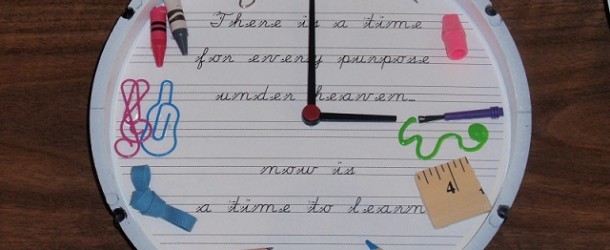 There is a time
for every purpose
under heaven...
4
now is
a time to learn